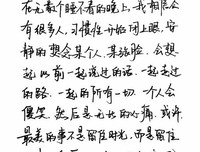 在无数个睡不着的晚上,我相信会
有很多人,习惯性开始闭上眼,安
静的想念某个人,某段旅,会想
起以前一起说过的话,一起走过
的路,一起的所有一切,一个人会
傻笑,然后是无比的心痛,或许
最美的事不是留住时光,而是留住